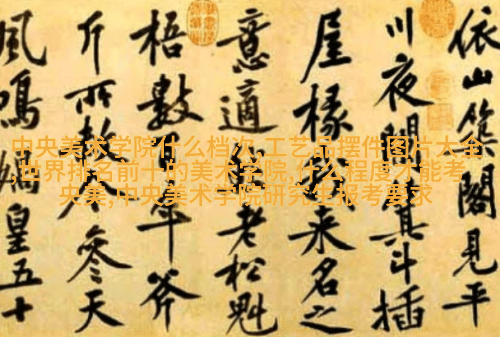 依山築閣見平
川夜闌箕斗插
屋椽我來名之
意適然老松魁
梧數百年斧
斤所赦今參天
風鳴媧皇五十
中央美术学院什么档次,工艺品摆件图片大全
世界排名前十的美术学院,什么程度才能考
央美,中央美术学院研究生报考要求